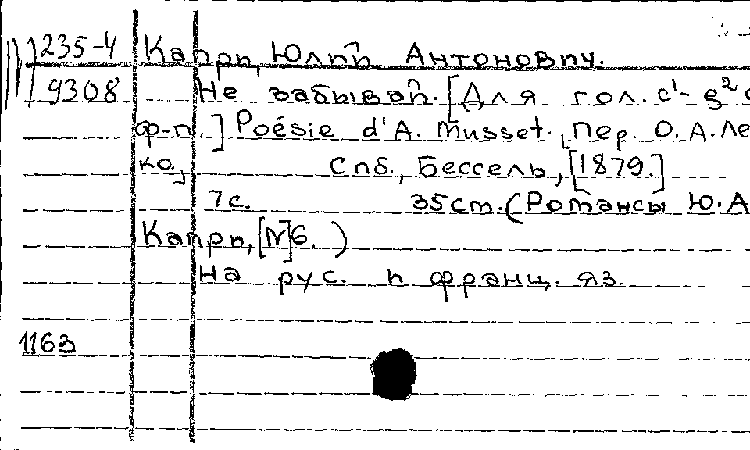 235-4 Капри, Юлий Антонович.
9308 Не забывай. [Для гол. c¹- g²
ф-п.] Poésie d'A. Musset. Пер. О. А. Ле
ко, Спб., Бессель, [1879.]
7с. 35cm. (Романсы Ю. А
Капри, [№]6.)
На рус. и франц. яз.
1163